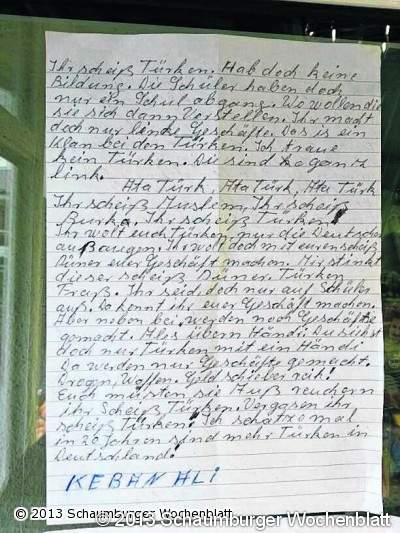 Ihr scheiß Türken. Hab doch keine
Bildung. Die Schüler haben doch
nur ein Schul abgang. Wo wollen die
sie sich dann Vorstellen. Ihr macht
doch nur linke Geschäfte. Das is ein
Klan bei den Türken. Ich traue
kein Türken. Die sind so ganz
link.
Ata Türk, Ata Türk, Ata Türk
Ihr scheiß Muslem, Ihr scheiß
Burka, Ihr scheiß Türken!
Ihr wolt euch Türken nur die Deutschen
aus Saugen. Ihr wolt doch mit euren scheiß
Döner euer Geschäft machen. Mir stinkt
dieser scheiß Döner. Türken
Fraß. Ihr seid doch nur auf Schüler
aus. So könnt ihr euer Geschäft machen.
Aber neben bei werden noch Geschäfte
gemacht. Ales übern Händi. Du siehst
doch nur Türken mit ein Händi
Da werden nur Geschäfte gemacht.
Drogn, Waffen. Geld schieberreih!
Euch müsten sie Auß reuchern
ihr Scheiß Türken. Vergasen ihr
scheiß Türken! Ich schätze mal
in 20 Jahren sind mehr Türken in
Deutschland!
KEBAN ALI
© 2013 Schaumburger Wochenblatt
© 2013 Schaumburger Wochenblatt